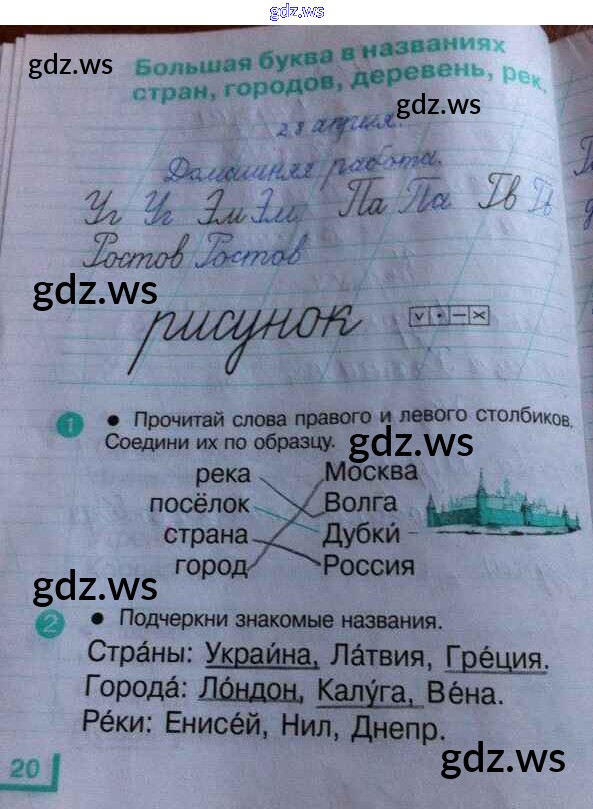 gdz.ws
gdz.ws
Большая буква в названиях
стран, городов, деревень, рек.
gdz.ws
28 апреля.
Домашняя работа.
Уг Уг Эм Эм Па Па Тв Тв
Ростов Ростов
gdz.ws
рисунок
1 • Прочитай слова правого и левого столбиков.
Соедини их по образцу.
gdz.ws
река Москва
посёлок Волга
страна Дубки́
город Россия
gdz.ws
2 • Подчеркни знакомые названия.
Стра́ны: Украи́на, Ла́твия, Гре́ция.
Города́: Ло́ндон, Калу́га, Ве́на.
Ре́ки: Енисе́й, Нил, Днепр.
gdz.ws
20